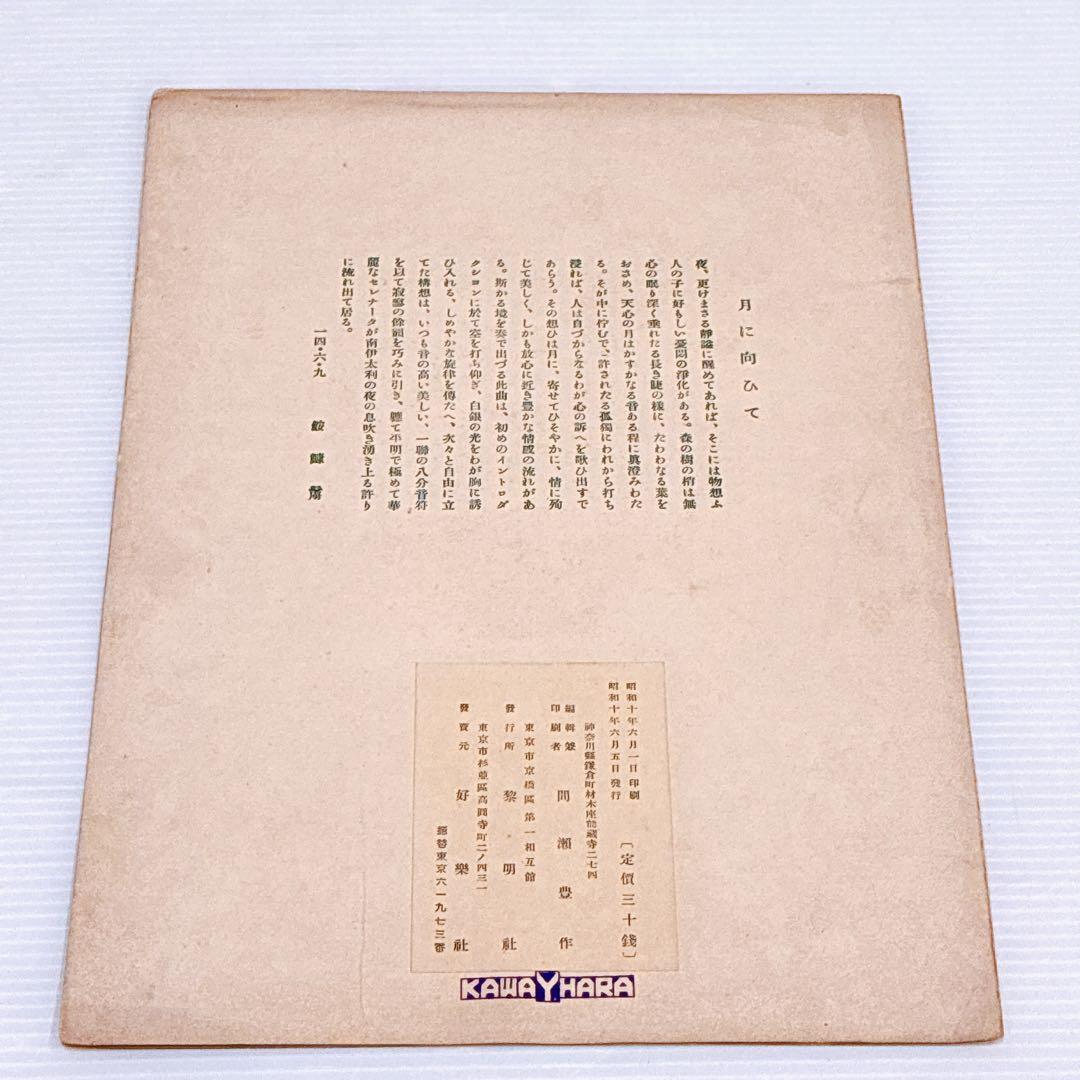 月に向ひて
夜、更けまさる靜謐に醒めてあれば、そこには物想ふ
人の子に好もしい憂悶の淨化がある。森の樹の梢は無
心の眠り深く垂れたる長き睫の樣に、たわわなる葉を
おさめ、天心の月はかすかなる音ある程に眞澄みわた
る。そが中に佇むで、許されたる孤獨にわれから打ち
浸れば、人は自づからなるわが心の訴へを歌ひ出すで
あらう。その想ひは月に、寄せてひそやかに、情に殉
じて美しく、しかも放心に近き豊かな情感の流れがあ
る。斯かる境を奏で出づる此曲は、初めのイントロダ
クシヨンに於て空を打ち仰ぎ、白銀の光をわが胸に誘
ひ入れる、しめやかな旋律を傳たへ、次々と自由に立
てた構想は、いつも音の高い美しい、一聯の八分音符
を以て寂寥の餘韻を巧みに引き、軈て平明で極めて華
麗なセレナータが南伊太利の夜の息吹き湧き上る許り
に流れ出て居る。
一四・六・九
昭和十年六月一日印刷
昭和十年六月五日發行
〔定價三十錢〕
神奈川縣鎌倉町材木座能藏寺二七四
編輯兼
印刷者
間瀨豊作
東京市京橋區第一相互館
發行所
黎明社
東京市杉並區高圓寺町二ノ四三一
發賣元
好樂社
振替東京六一九七三番
KAWAYHARA